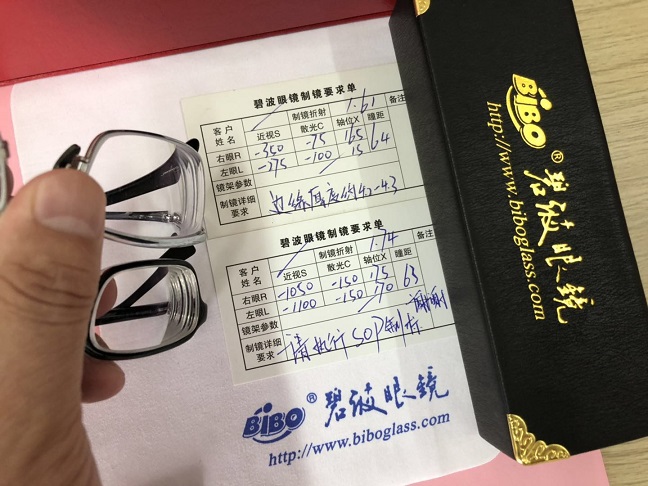 碧波眼镜制镜要求单
客户姓名 制镜折射 1.61 备注
近视S 散光C 轴位X 瞳距
右眼R -350 -75 165 64
左眼L -275 -100 15
镜架参数
制镜详细要求 边缘厚度约4-4.3
碧波眼镜制镜要求单
客户姓名 制镜折射 1.74 备注
近视S 散光C 轴位X 瞳距
右眼R -1050 -150 15 63
左眼L -1100 -150 170
镜架参数 谢谢
制镜详细要求 请执行SOP制作
BIBO® 碧波眼镜
http://www.biboglass.com
BIBO® 碧波眼镜
http://www.biboglass.com